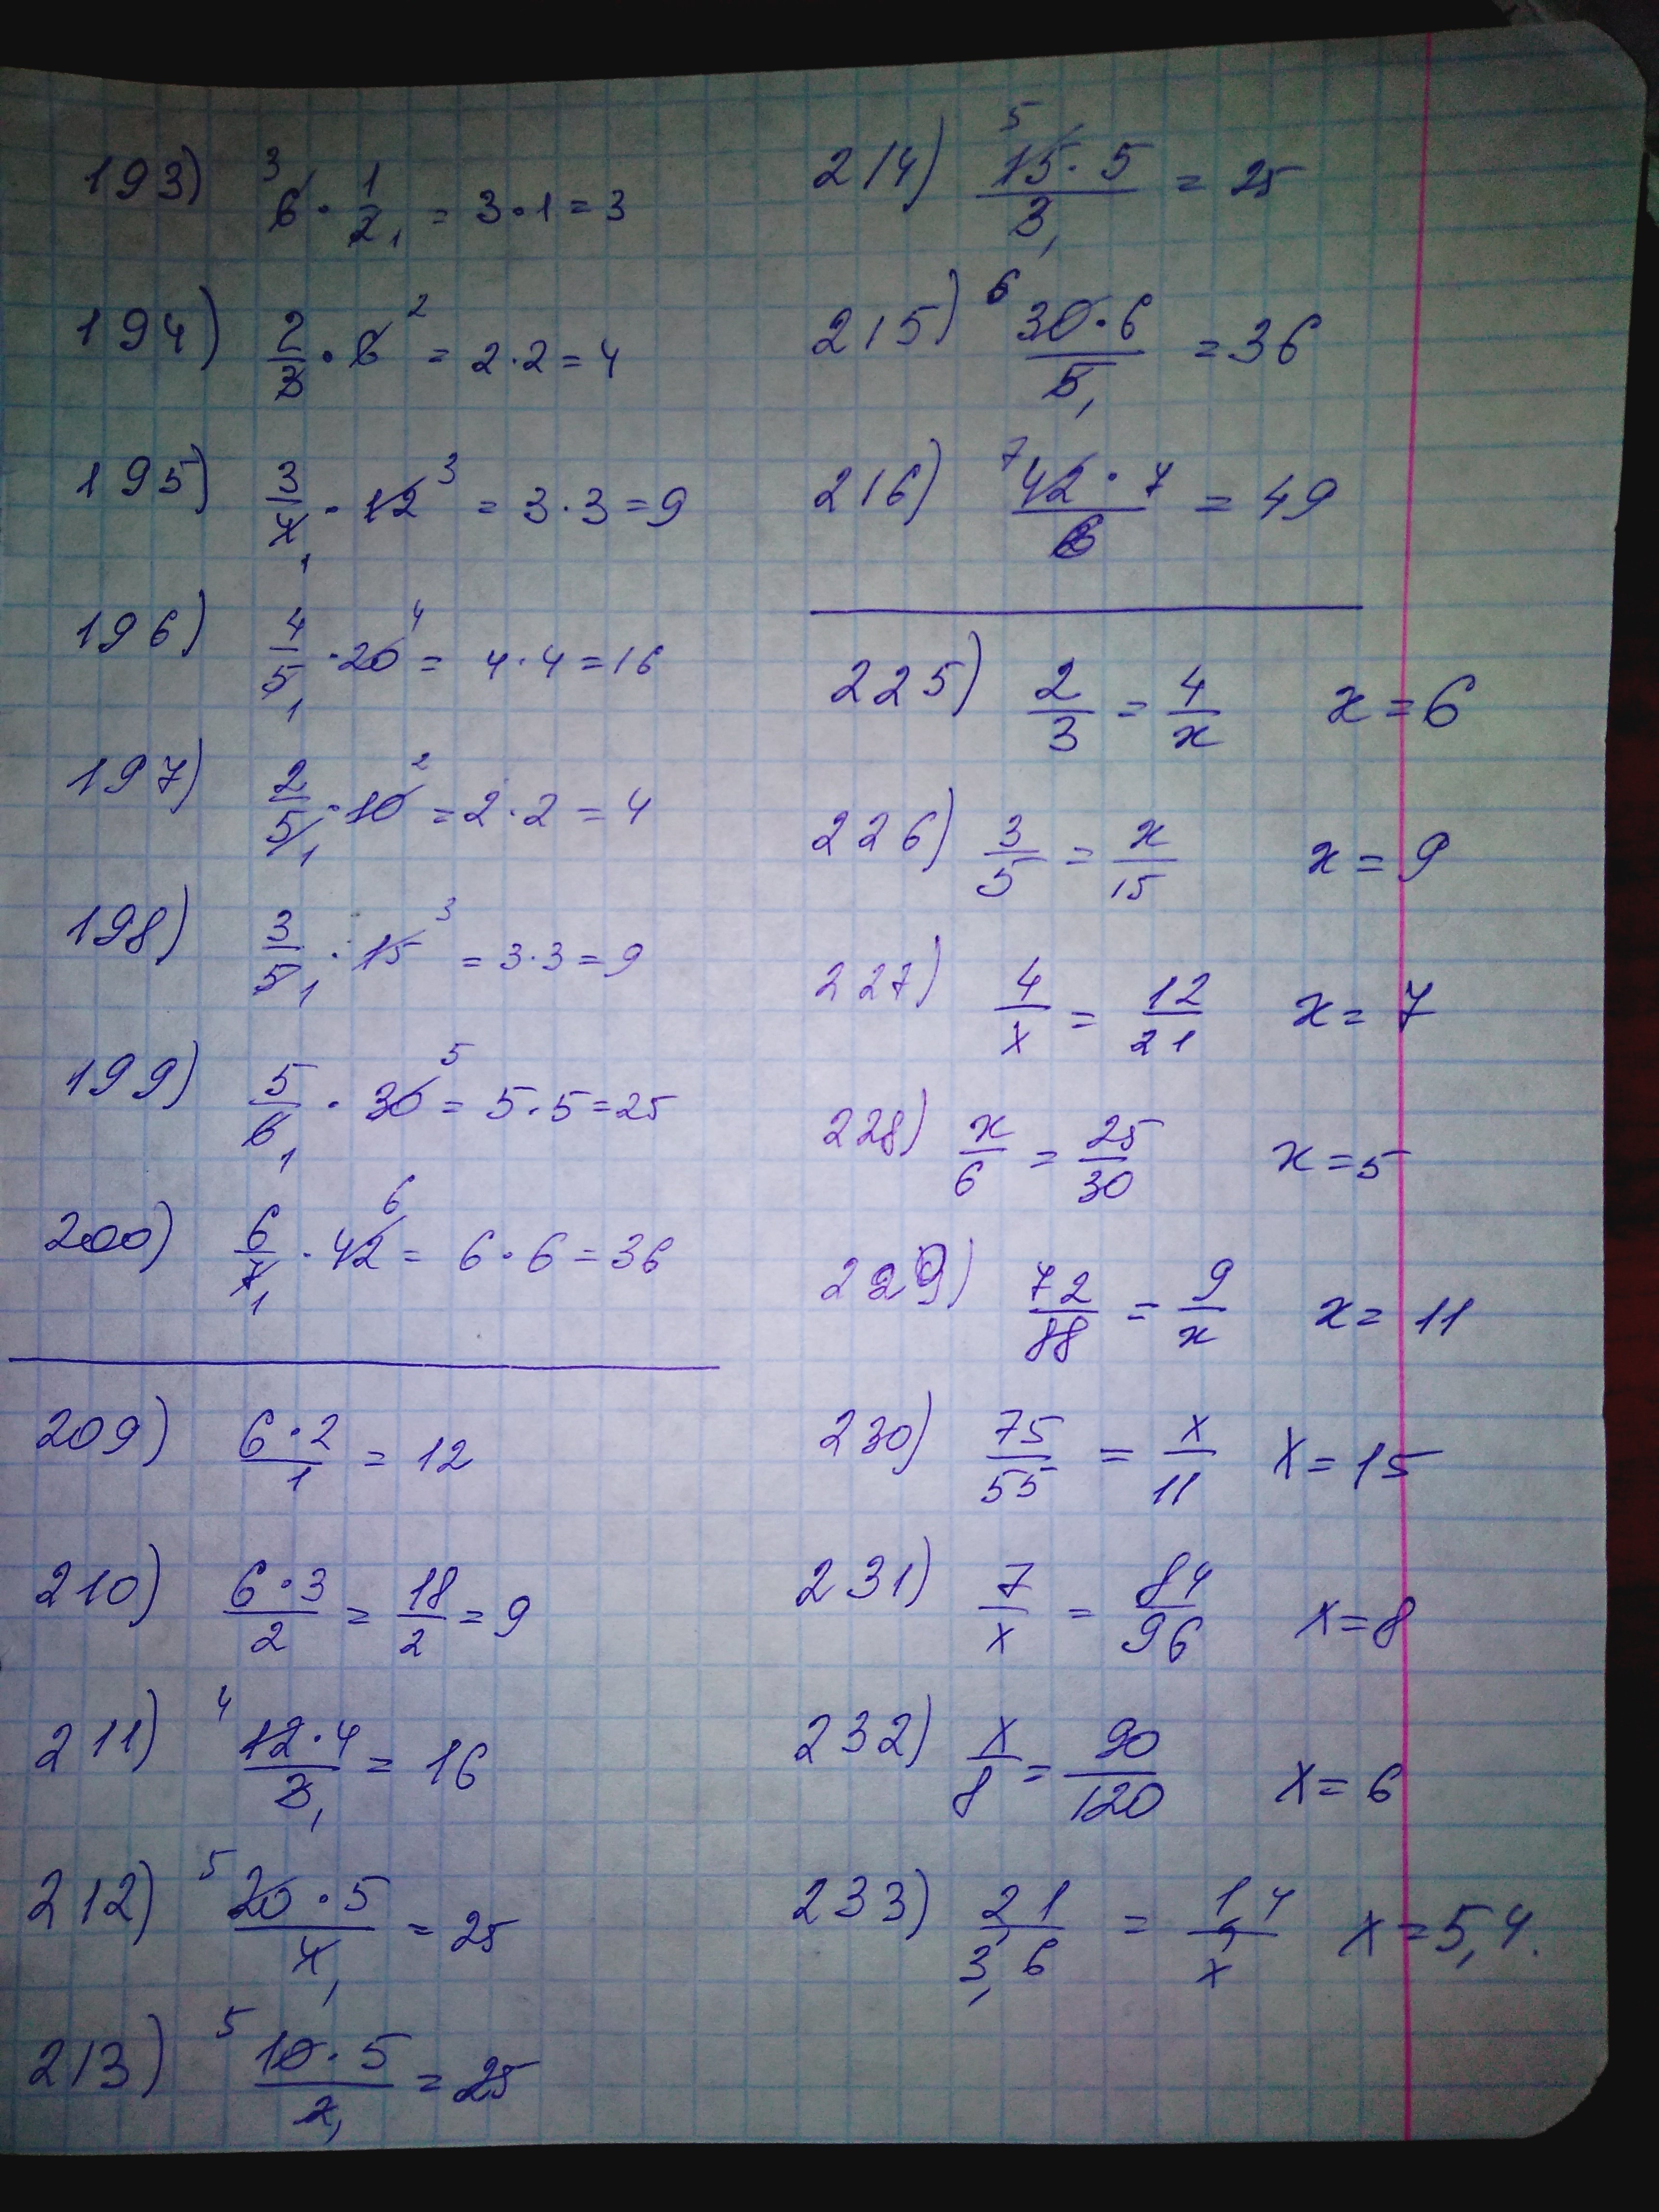 193) 6 · 1/2 = 3 · 1 = 3
194) 2/3 · 6 = 2 · 2 = 4
195) 3/4 · 12 = 3 · 3 = 9
196) 4/5 · 20 = 4 · 4 = 16
197) 2/5 · 10 = 2 · 2 = 4
198) 3/5 · 15 = 3 · 3 = 9
199) 5/6 · 30 = 5 · 5 = 25
200) 6/7 · 42 = 6 · 6 = 36
209) 6 · 2/1 = 12
210) 6 · 3/2 = 18/2 = 9
211) 12 · 4/3 = 16
212) 20 · 5/4 = 25
213) 10 · 5/2 = 25
214) 15 · 5/3 = 25
215) 30 · 6/5 = 36
216) 42 · 7/6 = 49
225) 2/3 = 4/x x = 6
226) 3/5 = x/15 x = 9
227) 4/x = 12/21 x = 7
228) x/6 = 25/30 x = 5
229) 72/88 = 9/x x = 11
230) 75/55 = x/11 x = 15
231) 7/x = 84/96 x = 8
232) x/8 = 90/120 x = 6
233) 2,1/3,6 = 1,4/x x = 5,4.